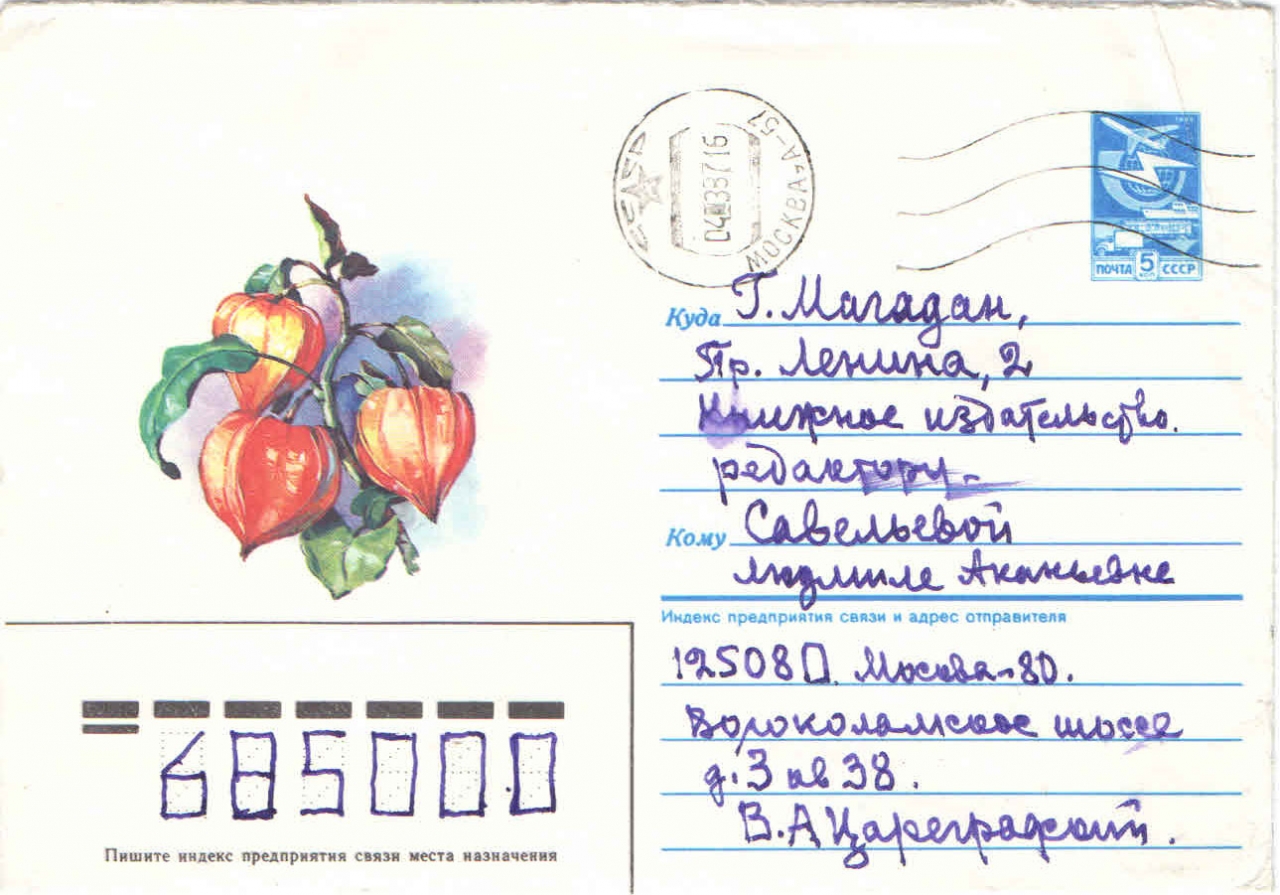 СССР
04 03 87 16
МОСКВА А-57
1982
ПОЧТА 5 КОП СССР
Куда Г. Магадан,
Пр. Ленина, 2
Книжное издательство.
редактору
Кому Савельевой
Людмиле Ананьевне
Индекс предприятия связи и адрес отправителя
125080. Москва-80.
Волоколамское шоссе
д. 3 кв 38.
В.А Цареградский.
685000
Пишите индекс предприятия связи места назначения